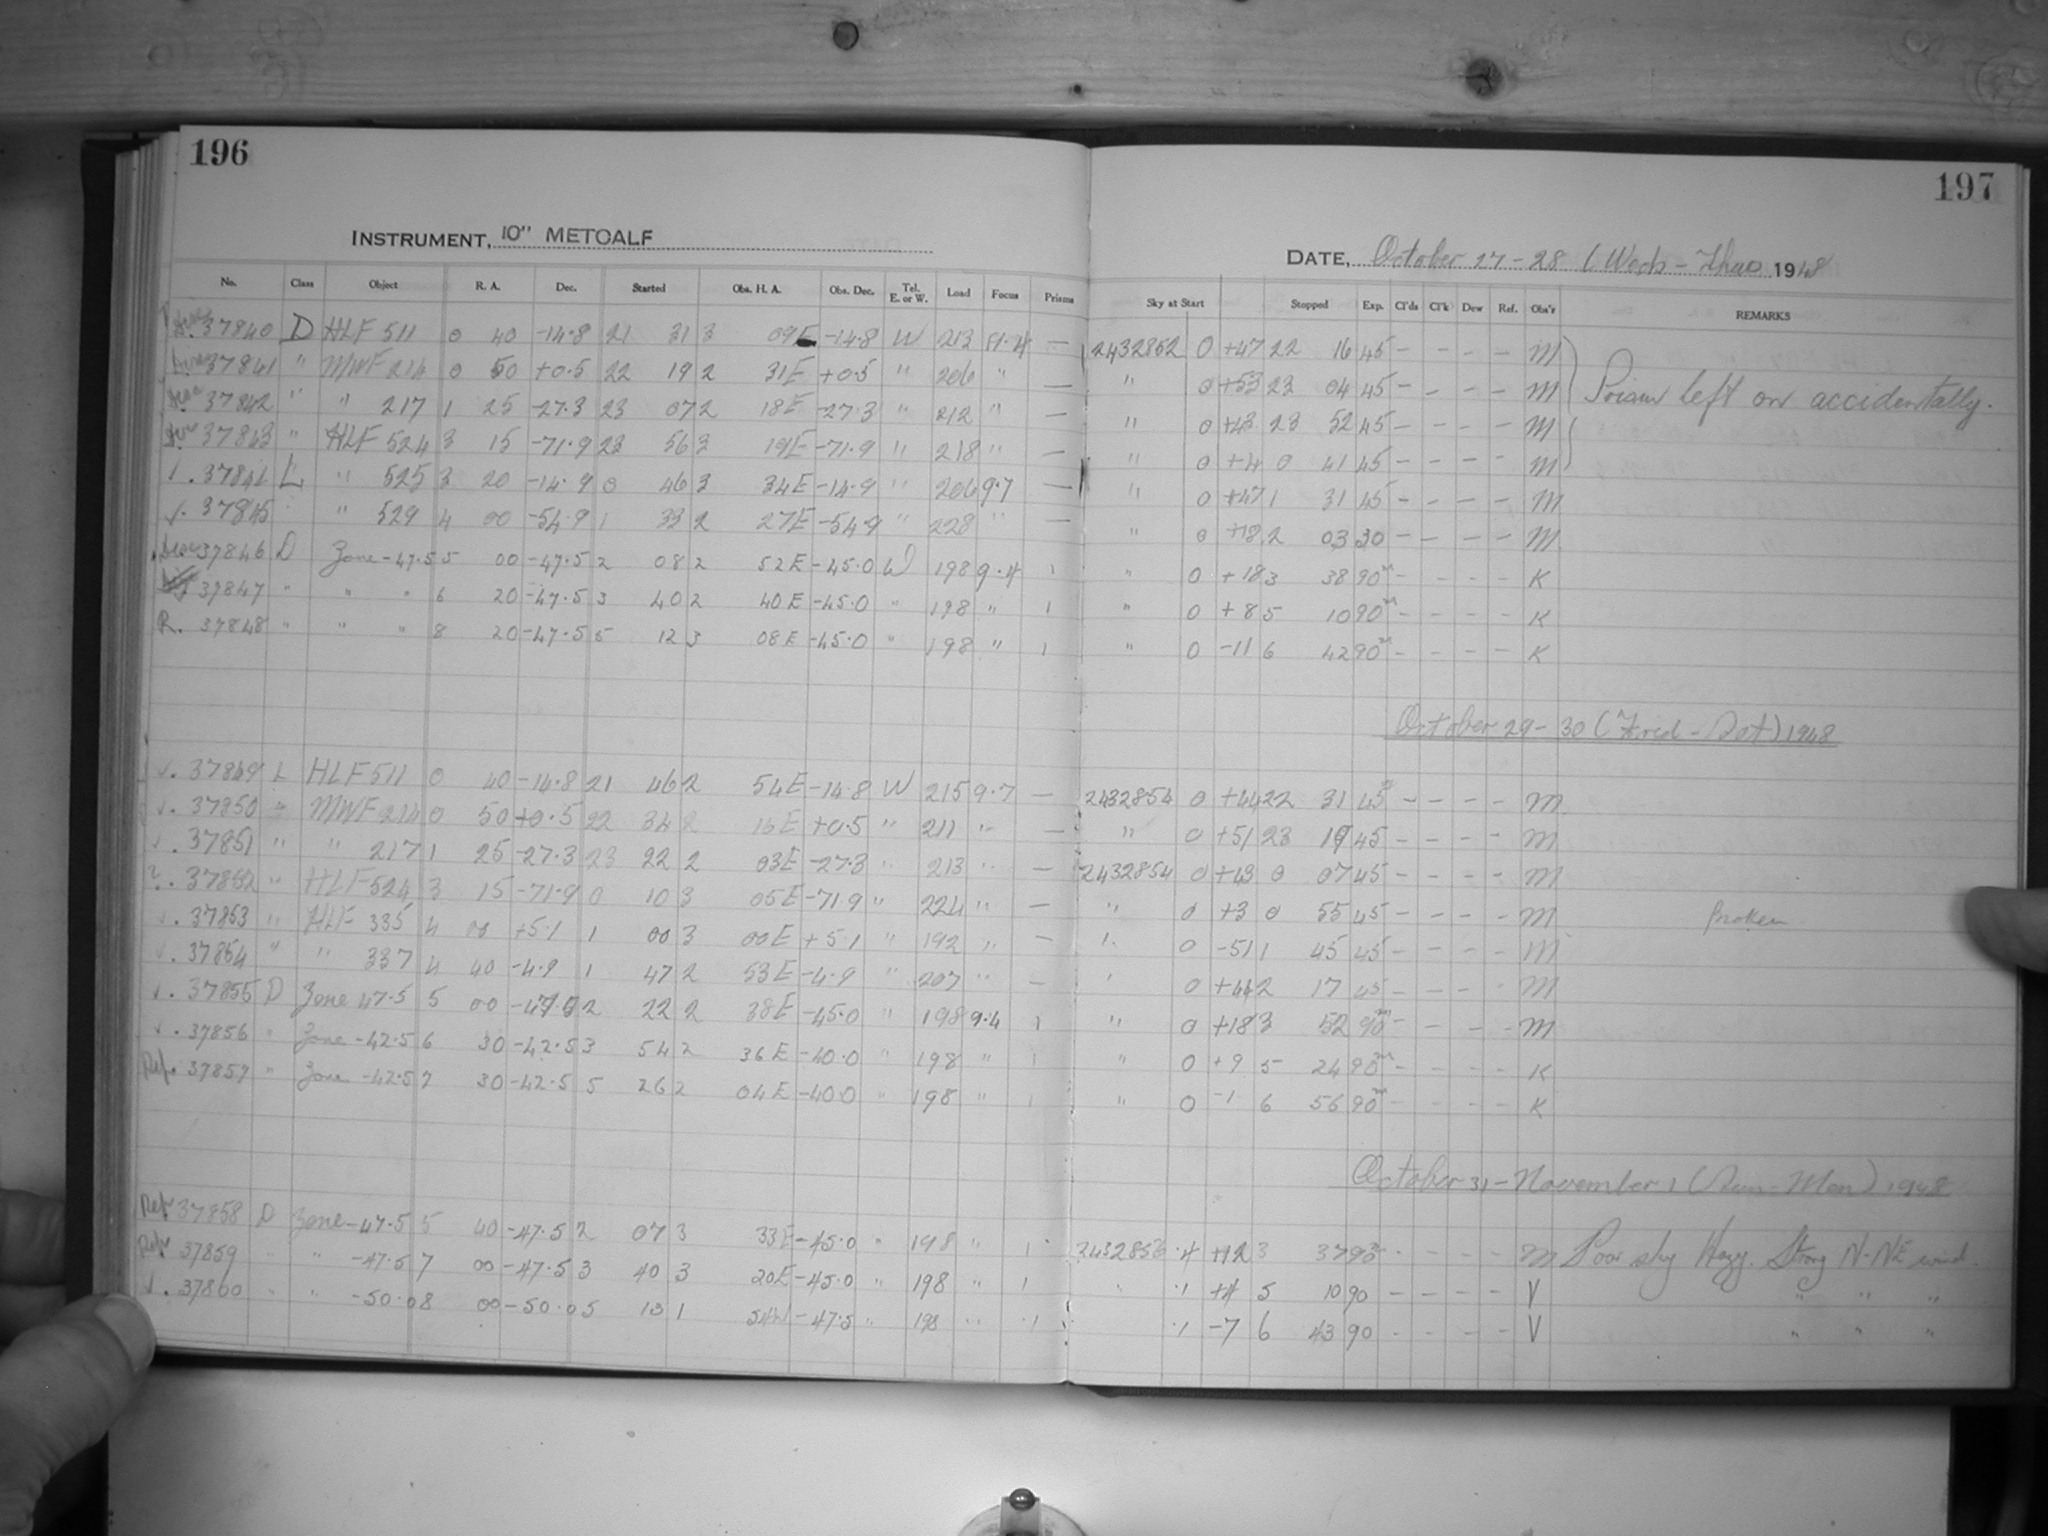 196
INSTRUMENT, 10" METCALF
No. Class Object R. A. Dec. Started Obs. H. A. Obs. Dec. Tel. E. or W. Load Focus Prisms
37840 D HLF 511 0 40 -14.8 21 31 3 09E -14.8 W 213 —
37841 " MWF 214 0 50 +0.5 22 19 2 31E +0.5 " 206 " —
37842 " " 217 1 25 -27.3 23 07 2 18E -27.3 " 212 " —
37843 " HLF 524 3 15 -71.9 23 56 3 19E -71.9 " 218 " —
37844 L " 525 3 20 -14.9 0 46 3 34E -14.9 " 206 9.7 —
37845 " 529 4 00 -54.9 1 33 2 27E -54.9 " 228 " —
37846 D Zone -47.5 5 00 -47.5 2 08 2 52E -45.0 W 198 9.4 1
37847 " " " 6 20 -47.5 3 40 2 40E -45.0 " 198 " 1
R. 37848 " " " 8 20 -47.5 5 12 3 08E -45.0 " 198 " 1
37849 L HLF 511 0 40 -14.8 21 46 2 54E -14.8 W 215 9.7 —
37850 " MWF 214 0 50 +0.5 22 34 2 16E +0.5 " 211 " —
37851 " " 217 1 25 -27.3 23 22 2 03E -27.3 " 213 " —
?. 37852 " HLF 524 3 15 -71.9 0 10 3 05E -71.9 " 224 " —
37853 " HLF 335 4 00 +5.1 1 00 3 00E +5.1 " 192 " —
37854 " " 337 4 40 -4.9 1 47 2 53E -4.9 " 207 " —
37855 D Zone 47.5 5 00 2 22 2 38E -45.0 " 198 9.4 1
37856 " Zone -42.5 6 30 -42.5 3 54 2 36E -40.0 " 198 " 1
Ref. 37857 " Zone -42.5 7 30 -42.5 5 26 2 04E -40.0 " 198 " 1
Ref 37858 D Zone -47.5 5 40 -47.5 2 07 3 33E -45.0 " 198 " 1
Ref 37859 " " -47.5 7 00 -47.5 3 40 3 20E -45.0 " 198 " 1
37860 " " -50.0 8 00 -50.0 5 13 1 -47.5 " 198 " 1
197
DATE, October 27-28 (Weds-Thur) 1948
Sky at Start Stopped Exp. Cl'ds Cl'k Dew Ref. Obs'r REMARKS
2432852 0 +47 22 16 45 — — — — M
" 0 +53 23 04 45 — — — — M Prism left on accidentally.
" 0 +43 23 52 45 — — — — M
" 0 +4 0 41 45 — — — — M
" 0 +47 1 31 45 — — — — M
" 0 +18 2 03 30 — — — — M
" 0 +18 3 38 90m — — — — K
" 0 +8 5 10 90m — — — — K
" 0 -11 6 42 90m — — — — K
October 29-30 (Frid-Sat) 1948
2432854 0 +44 22 31 45 — — — — M
" 0 +51 23 19 45 — — — — M
2432854 0 +43 0 07 45 — — — — M
" 0 +3 0 55 45 — — — — M Broken
" 0 -51 1 45 45 — — — — M
" 0 +44 2 17 45 — — — — M
" 0 +18 3 52 90m — — — — M
" 0 +9 5 24 90m — — — — K
" 0 -1 6 56 90m — — — — K
October 31-November 1 (Sun-Mon) 1948
2432856 .4 +12 3 37 90 — — — — M Poor sky Hazy. Strong N-NE wind.
" .1 +4 5 10 90 — — — — V " " "
.1 -7 6 43 90 — — — — V " " "